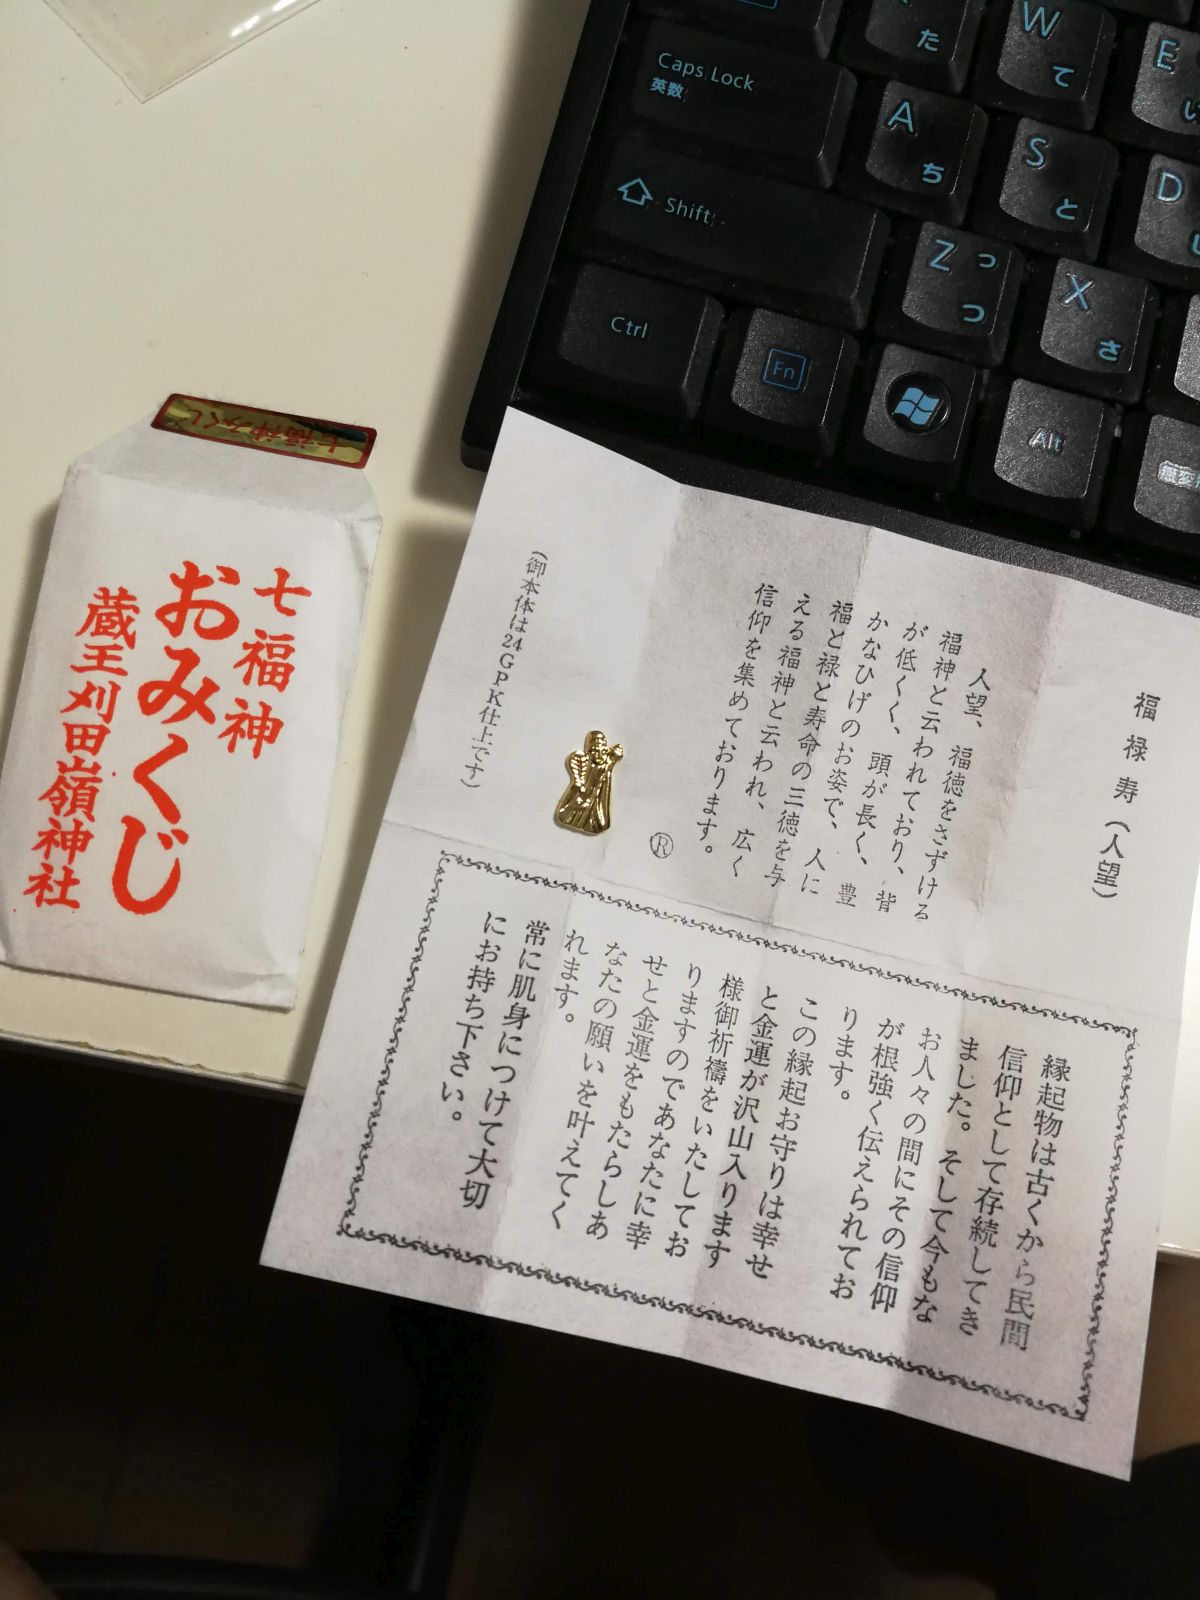 た
W
て
E
い
Caps Lock
英数
A
ち
S
と
D
Shift
Z
っ
つ
X
さ
Ctrl
Fn
Alt
七福神みくじ
七福神
おみくじ
蔵王刈田嶺神社
福禄寿(人望)
人望、福徳をさずける
福神と云われており、背
が低くく、頭が長く、豊
かなひげのお姿で、人に
福と禄と寿命の三徳を与
える福神と云われ、広く
信仰を集めております。
®
(御本体は24GPK仕上です)
縁起物は古くから民間
信仰として存続してき
ました。そして今もな
お人々の間にその信仰
が根強く伝えられてお
ります。
この縁起お守りは幸せ
と金運が沢山入ります
様御祈禱をいたしてお
りますのであなたに幸
せと金運をもたらしあ
なたの願いを叶えてく
れます。
常に肌身につけて大切
にお持ち下さい。